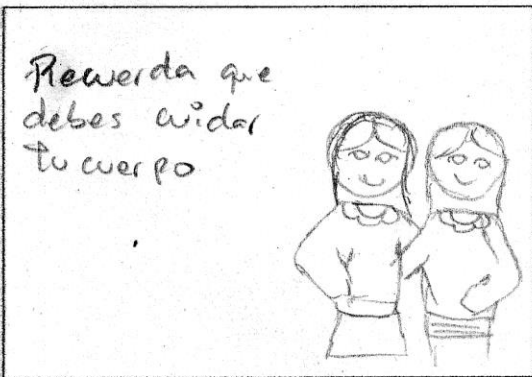 Recuerda que
debes cuidar
tu cuerpo